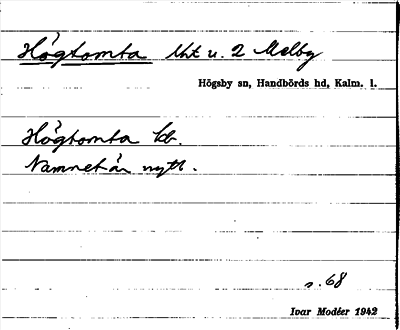 Högtomta lht u. 2 Melby
Högsby sn, Handbörds hd, Kalm. l.
Högtomta lb.
Namnet är nytt.
s. 68
Ivar Modéer 1942